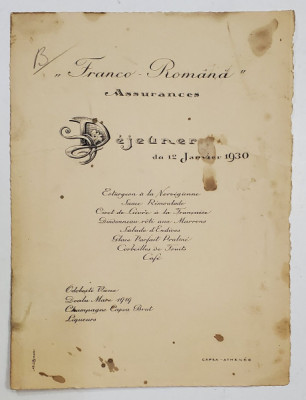 B
„Franco - Română"
Assurances
Déjeuner
du 12 Janvier 1930
Esturgeon à la Norvégienne
Sauce Rémoulade
de à la Française
Dindonneau rôti aux Marrons
Salade d'Endives
Glace Parfait Praliné
Corbeilles de Fruits
Café
Odobesti Blanc
Dealu Mare 1919
Champagne Capsa Brut
Liqueurs
CAPSA-ATHÉNÉE